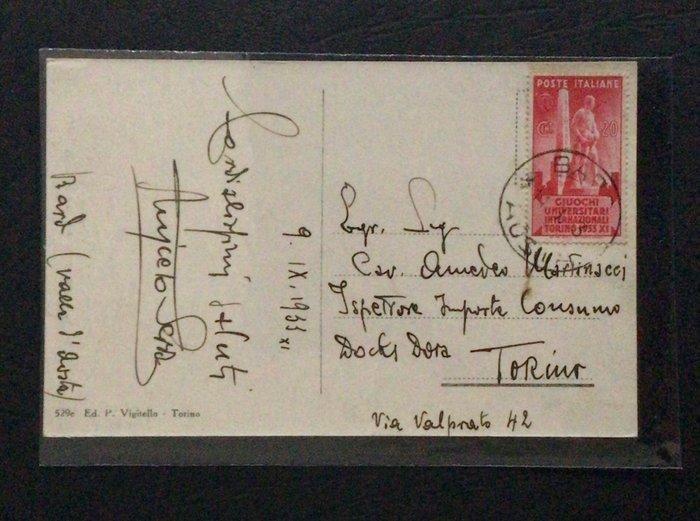 POSTE ITALIANE
20
GIUOCHI
UNIVERSITARI
INTERNAZIONALI
TORINO 1933 XI
BARD
Cordialissimi saluti
9. IX. 1933 XI
Bard (valle d'Aosta)
Egr. Sig
Cav. Amedeo Martinacci
Ispettore Imposte Consumo
Docks Dora
Torino
Via Valprato 42
529e Ed. P. Vigitello - Torino